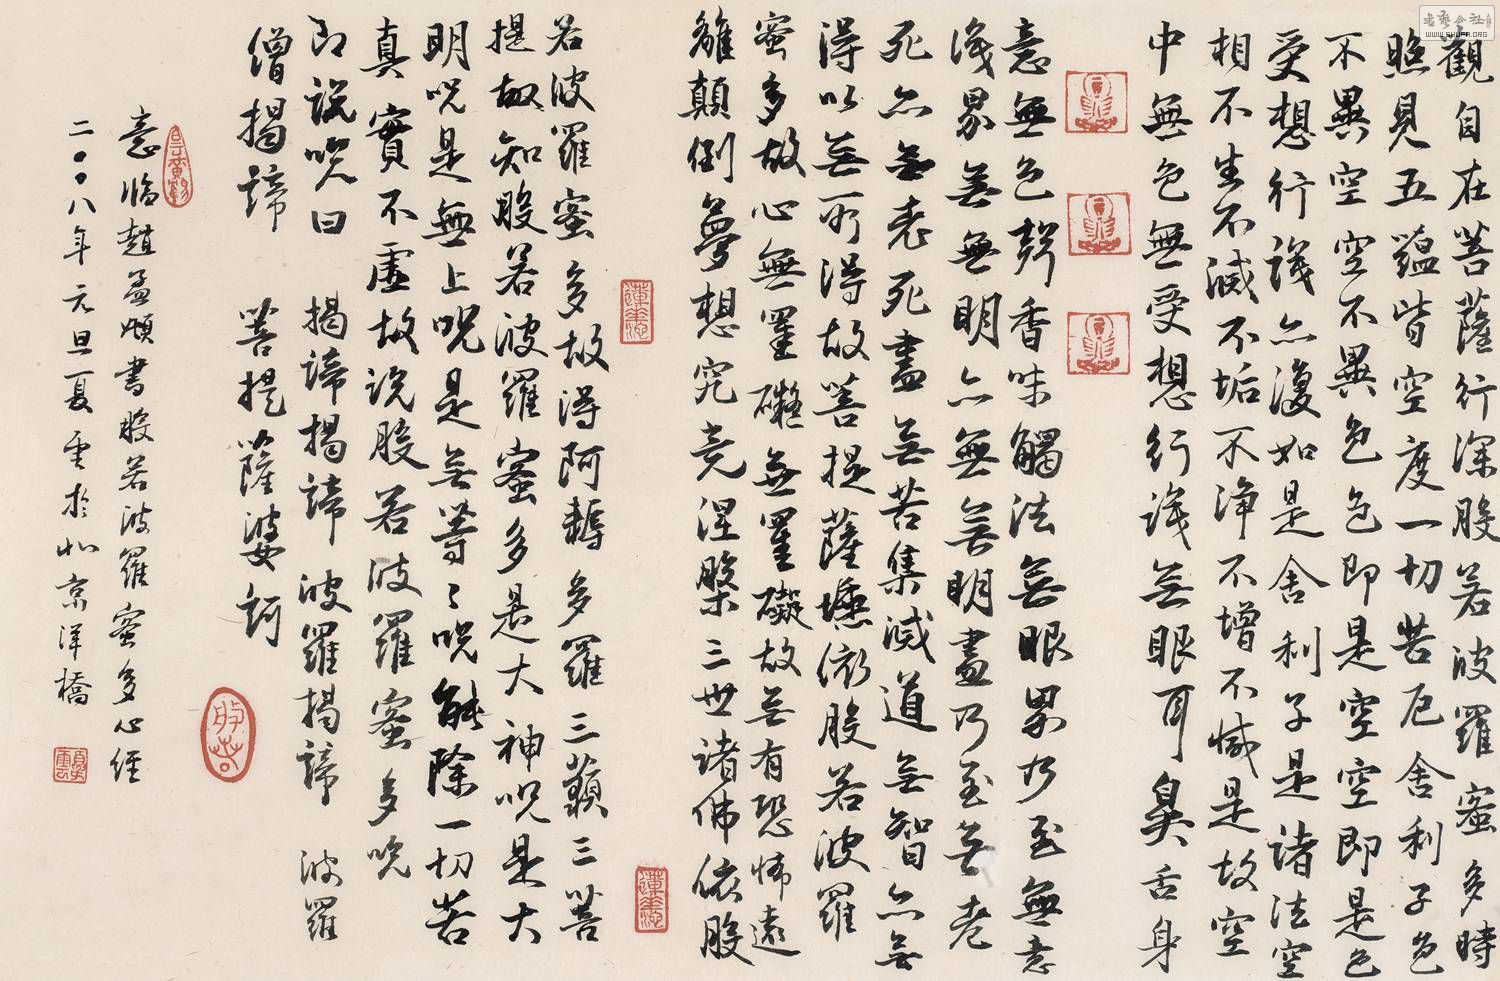 觀自在菩薩行深般若波羅蜜多時
照見五蘊皆空度一切苦厄舍利子色
不異空空不異色色即是空空即是色
受想行識亦復如是舍利子是諸法空
相不生不滅不垢不淨不增不減是故空
中無色無受想行識無眼耳鼻舌身
意無色聲香味觸法無眼界乃至無意
識界無無明亦無無明盡乃至無老
死亦無老死盡無苦集滅道無智亦無
得以無所得故菩提薩埵依般若波羅
蜜多故心無罣礙無罣礙故無有恐怖遠
離顛倒夢想究竟涅槃三世諸佛依般
若波羅蜜多故得阿耨多羅三藐三菩
提故知般若波羅蜜多是大神咒是大
明咒是無上咒是無等〻咒能除一切苦
真實不虛故說般若波羅蜜多咒
即說咒曰 揭諦揭諦 波羅揭諦 波羅
僧揭諦 菩提薩婆訶
意臨趙孟頫書般若波羅蜜多心經
二〇〇八年元旦夏雲於北京洋橋
夏雲
WWW.SHUFA.ORG